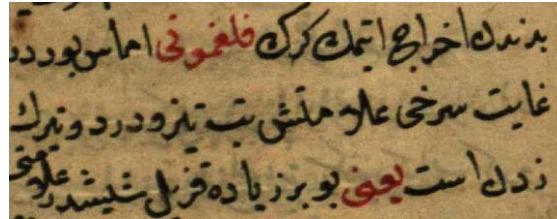 بدندن اخراج اتمك كرك فلغمونى اماس بودر
غايت سرخى علامتش تب تيز و درد و تيرك
زدن است يعنى بو بر زياده قزل شيشدر علامتى